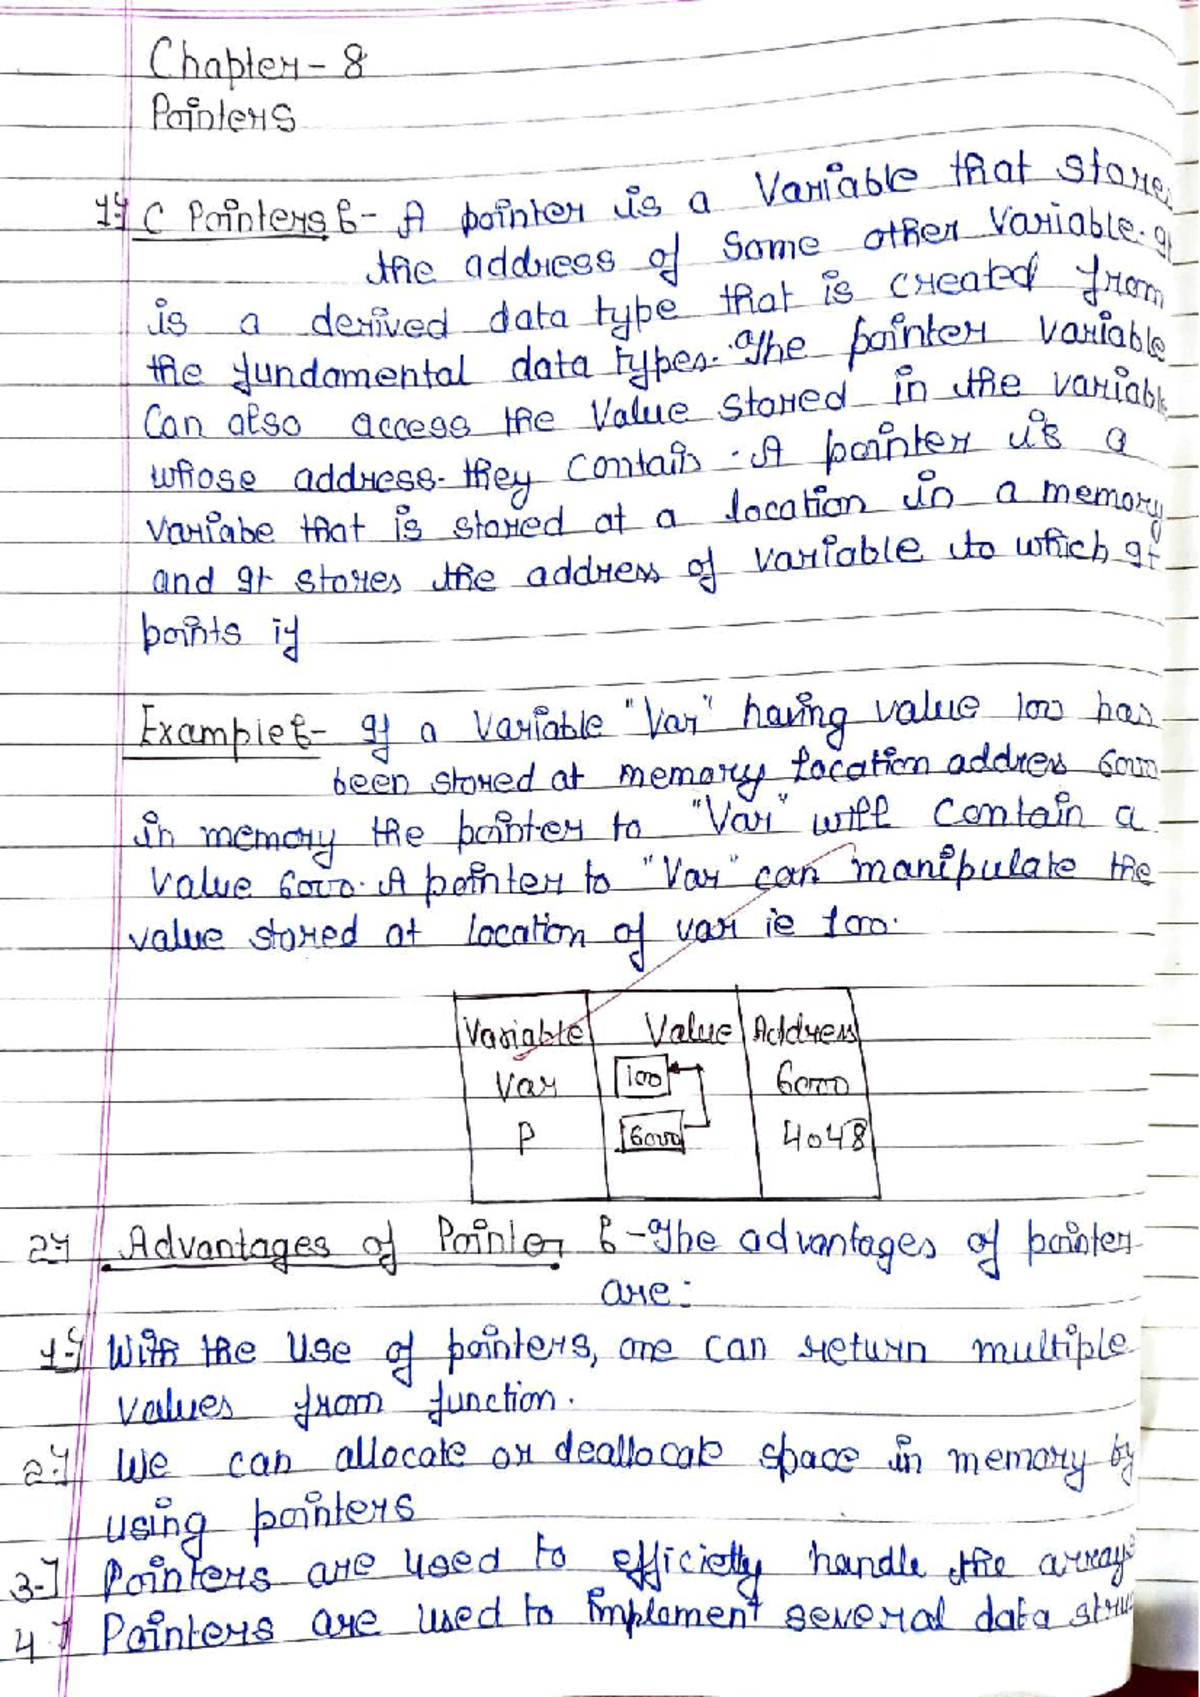 Chapter - 8
Pointers
1) C Pointers :- A pointer is a Variable that store
the address of Some other Variable. It
is a derived data type that is created from
the fundamental data types. The pointer variable
Can also access the Value stored in the variabl
whose address they contain. A pointer is a
variabe that is stored at a location in a memory
and It stores the address of variable to which It
points if
Example :- If a Variable "Var" having value 100 has
been stored at memory location address 6000
in memory the pointer to "Var" will contain a
value 6000. A pointer to "Var" can manipulate the
value stored at location of var ie 100.
Variable Value Address
Var 100 6000
P 6000 4048
2) Advantages of Pointer :- The advantages of pointer
are :
1) With the Use of pointers, one can return multiple
values from function.
2) We can allocate or deallocate space in memory by
using pointers
3) Pointers are used to efficietly handle the arrays
4) Pointers are used to implement several data stru